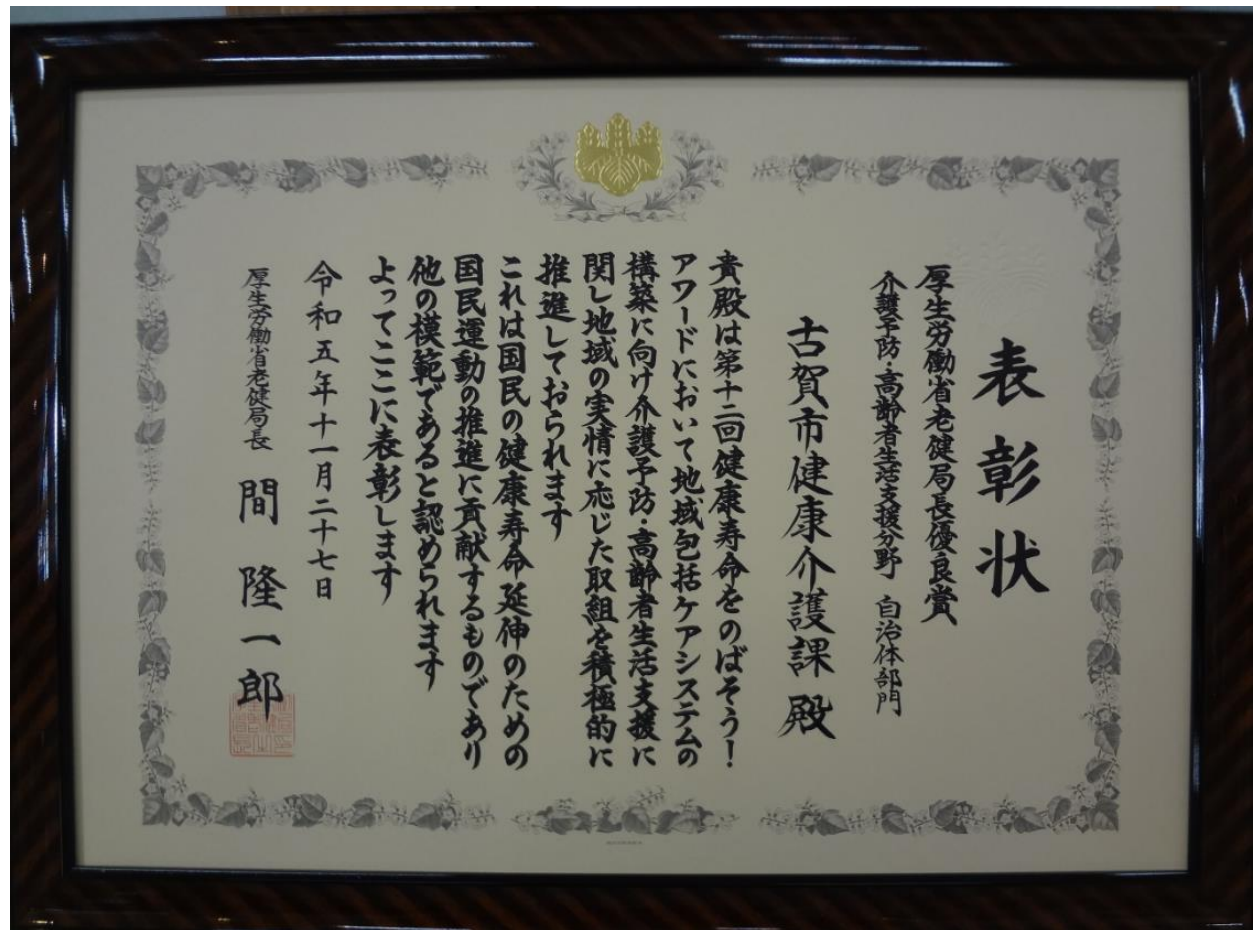 表彰状
厚生労働省老健局長優良賞
介護予防・高齢者生活支援分野 自治体部門
古賀市健康介護課 殿
貴殿は第十二回健康寿命をのばそう!
アワードにおいて地域包括ケアシステムの
構築に向け介護予防・高齢者生活支援に
関し地域の実情に応じた取組を積極的に
推進しておられます
これは国民の健康寿命延伸のための
国民運動の推進に貢献するものであり
他の模範であると認められます
よってここに表彰します
令和五年十一月二十七日
厚生労働省老健局長 間 隆一郎